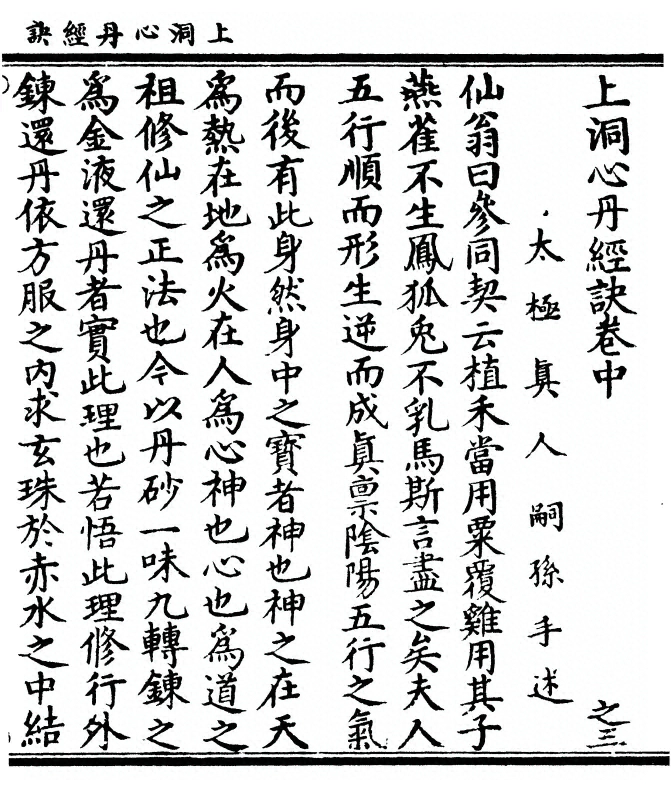 上洞心丹經訣
上洞心丹經訣卷中 之三
太極眞人嗣孫手述
仙翁曰參同契云植禾當用粟覆雞用其子
燕雀不生鳳狐兎不乳馬斯言盡之矣夫人
五行順而形生逆而成眞禀陰陽五行之氣
而後有此身然身中之寶者神也神之在天
爲熱在地爲火在人爲心神也心也爲道之
祖修仙之正法也今以丹砂一味九轉鍊之
爲金液還丹者實此理也若悟此理修行外
鍊還丹依方服之內求玄珠於赤水之中結